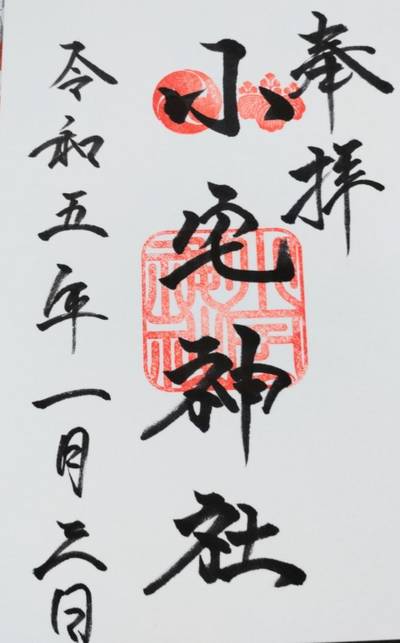 奉拝
小宅神社
令和五年一月三日